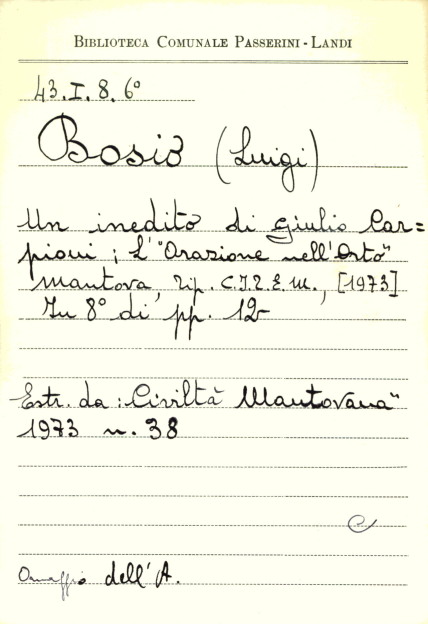 BIBLIOTECA COMUNALE PASSERINI - LANDI
43.I.8.6°
Bosio (Luigi)
Un inedito di Giulio Car=
pioni; L'"Orazione nell'Orto"
Mantova, Tip. C.I.T.E.M., [1973]
In 8° di pp. 12
Estr. da: Civiltà Mantovana"
1973 n. 38
Omaggio dell'A.